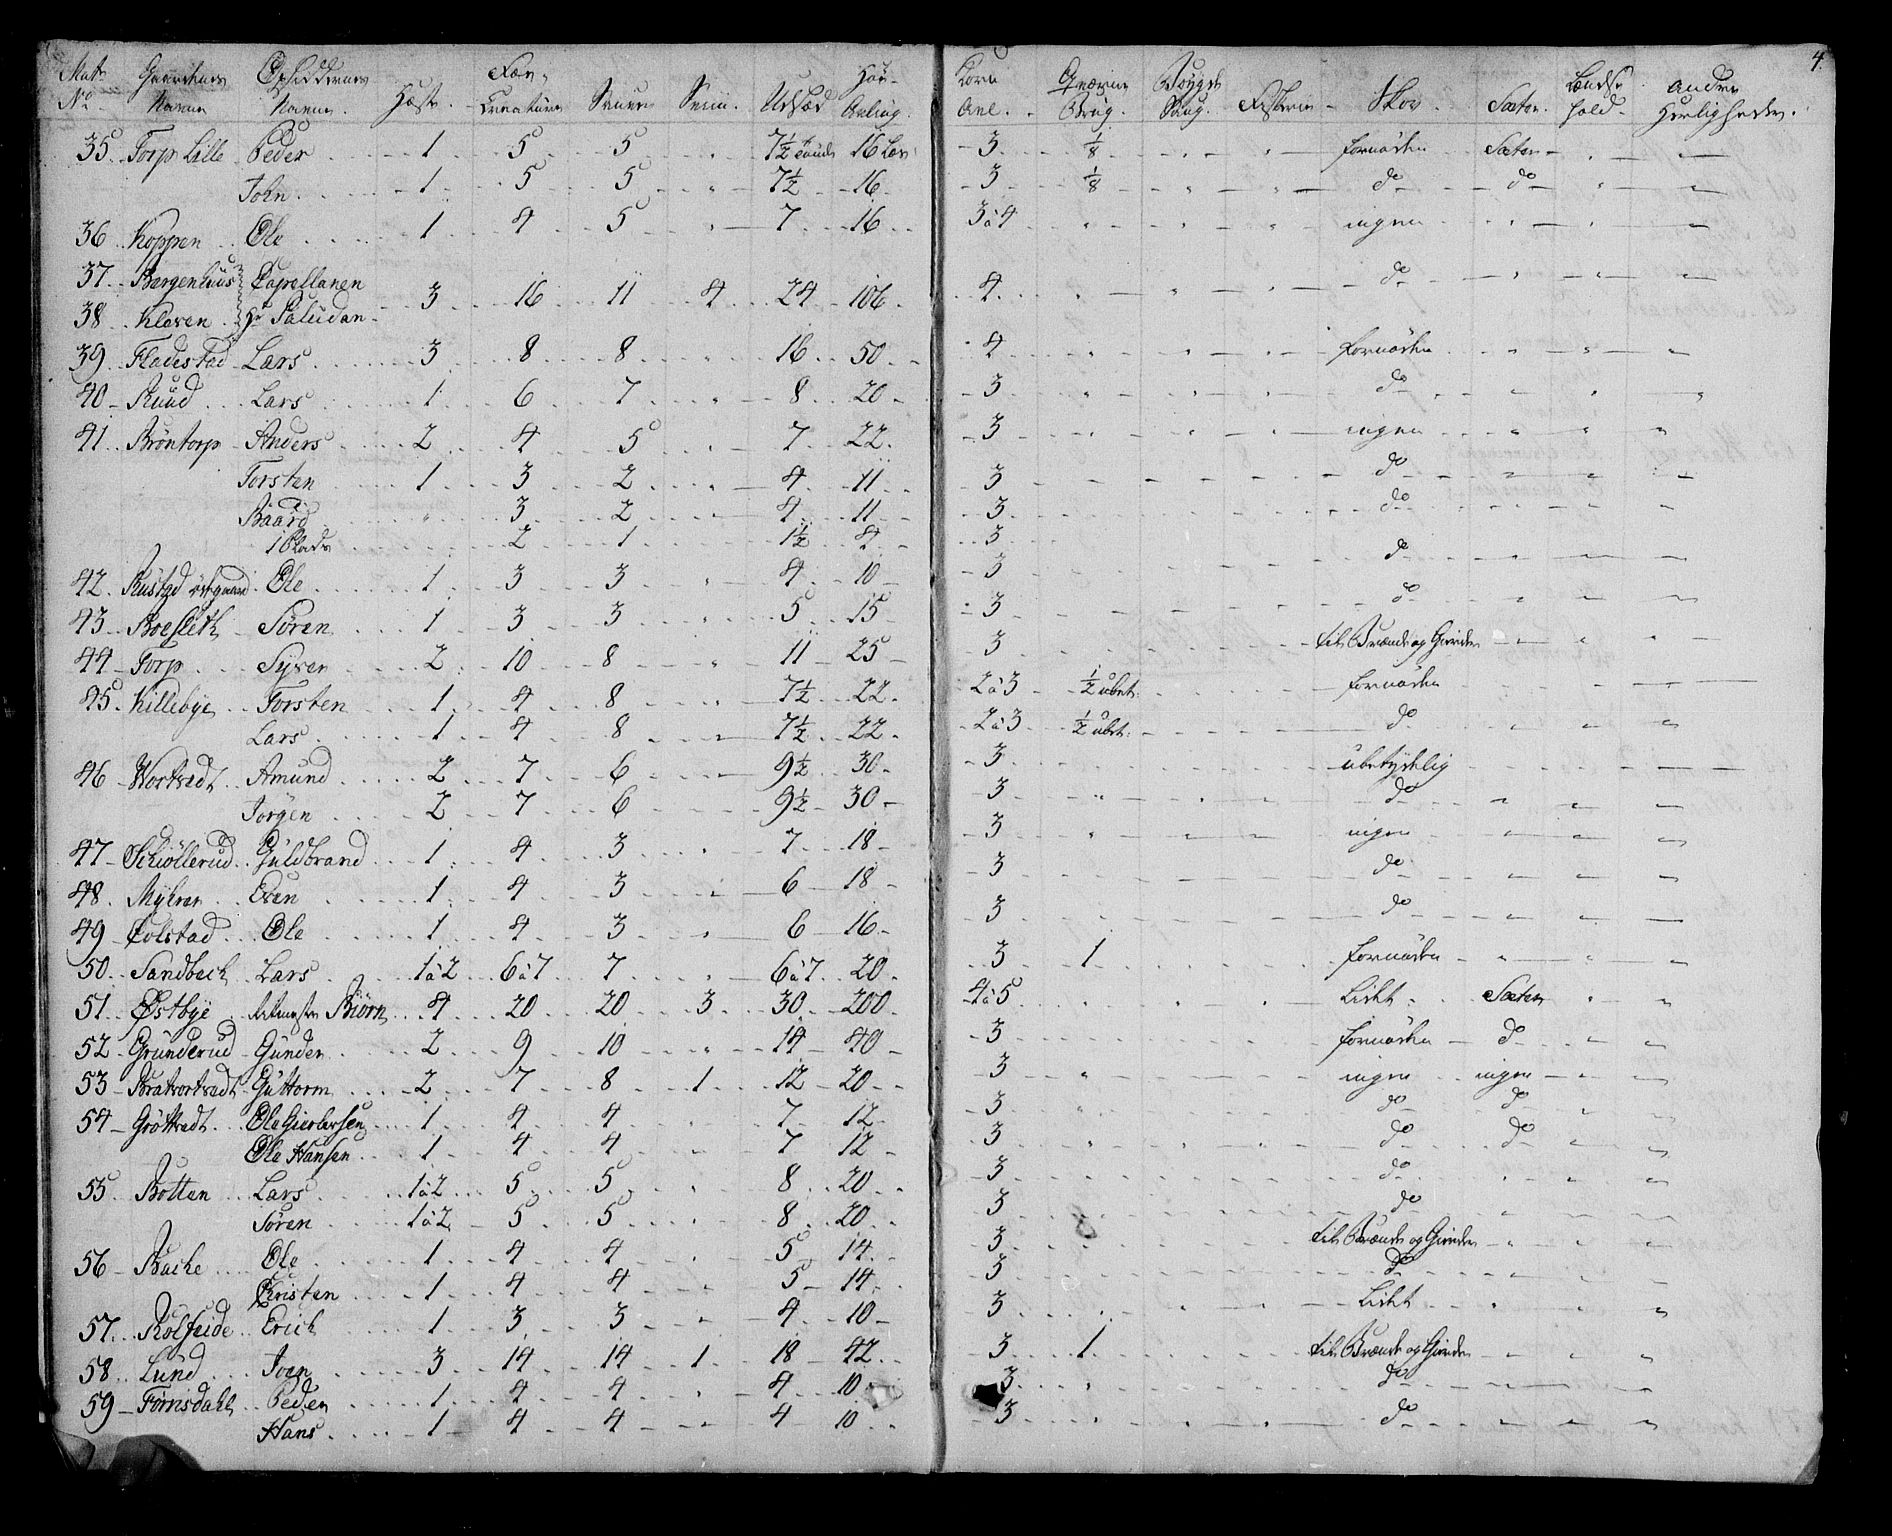 4.
Matr No | Gaardenes Navne | Opsiddernes Navne | Hæste | Føe-Creature | Sauer | Sviin | Udsæd | Høe-Avling | Korn Avl | Qværne Brug | Bøygde Saug | Fiskerie | Skov | Sæter | Lændse hold | Andre Herligheder
35 Torp Lille Peder 1 5 5 " 7½ Tønde 16 Læs 3 ⅛ " " fornøden Sæter " "
John 1 5 5 " 7½ 16 3 ⅛ " " do do " "
36 Koppen Ole 1 4 5 " 7 16 3 à 4 " " " ingen " " "
37 Borgenhuus Capellanen
38 Kloven Hr Paludan 3 16 11 4 24 106 4 " " " do " " "
39 Fladestad Lars 3 8 8 " 16 50 4 " " " fornøden " " "
40 Ruud Lars 1 6 7 " 8 20 3 " " " do " " "
41 Brøntorp Anders 2 4 5 " 7 22 3 " " " ingen " " "
Torsten 1 3 2 " 4 11 3 do " " "
Baard " 3 2 " 4 11 3 do " " "
1 Plads 2 1 1½ 4 3
42 Rustad østgaard Ole 1 3 3 " 4 10 3 do " " "
43 Boesleth Sören 1 3 3 " 5 15 3 do " " "
44 Torp Syver 2 10 8 " 11 25 3 til Brænde og Gierder " " "
45 Killebye Torsten 1 4 8 " 7½ 22 2 à 3 ½ ubet: fornøden
Lars 1 4 8 7½ 22 2 à 3 ½ ubet: do " " "
46 Wortvedt Amund 2 7 6 9½ 30 3 ubetydelig
Jørgen 2 7 6 9½ 30 3 " do " " "
47 Schiøllerud Guldbrand 1 4 3 " 7 18 3 " " " ingen " " "
48 Myhrer Even 1 4 3 " 6 18 3 do " " "
49 Colstad Ole 1 4 3 " 6 16 3 do " " "
50 Sandbech Lars 1 à 2 6 à 7 7 " 6 à 7 20 3 1 fornøden " " "
51 Østbye Ritmester Biørn 4 20 20 3 30 200 4 à 5 " " " Lidet Sæter " "
52 Grunderud Gunder 2 9 10 " 14 40 3 fornøden do " "
53 Bratvortvedt Guttorm 2 7 8 1 12 20 3 " ingen ingen " "
54 Grøttvedt Ole Gierlorsen 1 4 4 7 12 3 " do do " "
Ole Hansen 1 4 4 7 12 3 " " " do do " "
55 Botten Lars 1 à 2 5 5 " 8 20 3 do " " "
Sören 1 à 2 5 5 8 20 3 do
56 Bache Ole 1 4 4 5 14 3 til Brænde og Gierder " " "
Kristen 1 4 4 5 14 3 do " " "
57 Rolfseide Erich 1 3 3 " 4 10 3 Lidet " " "
58 Lund Joen 3 14 14 1 18 42 3 1 til Brænde og Gierder " " "
59 Tømsdahl Peder 1 4 4 " 4 10 3 " do " " "
Hans 1 4 4 " 4 10 3 " " do " " "